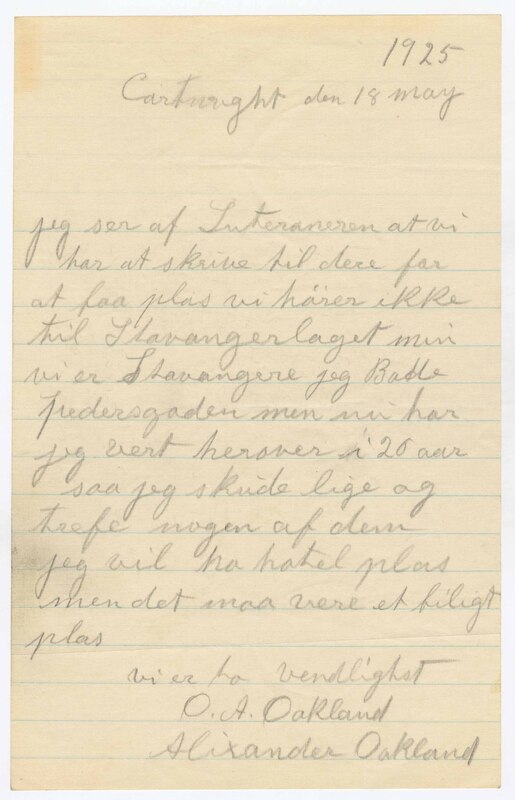 1925
Cartwright den 18 may
jeg ser af Luteraneren at vi
har at skrive til dere for
at faa plas vi hörer ikke
til Stavangerlaget min
vi er Stavangere jeg Bode
pedersgaden men nu har
jeg vert herover i 20 aar
saa jeg skude lige og
trefe nogen af dem
jeg vil ha hotel plas
men det maa vere et biligt
plas
vi er to vendlighst
O. A. Oakland
Alixander Oakland